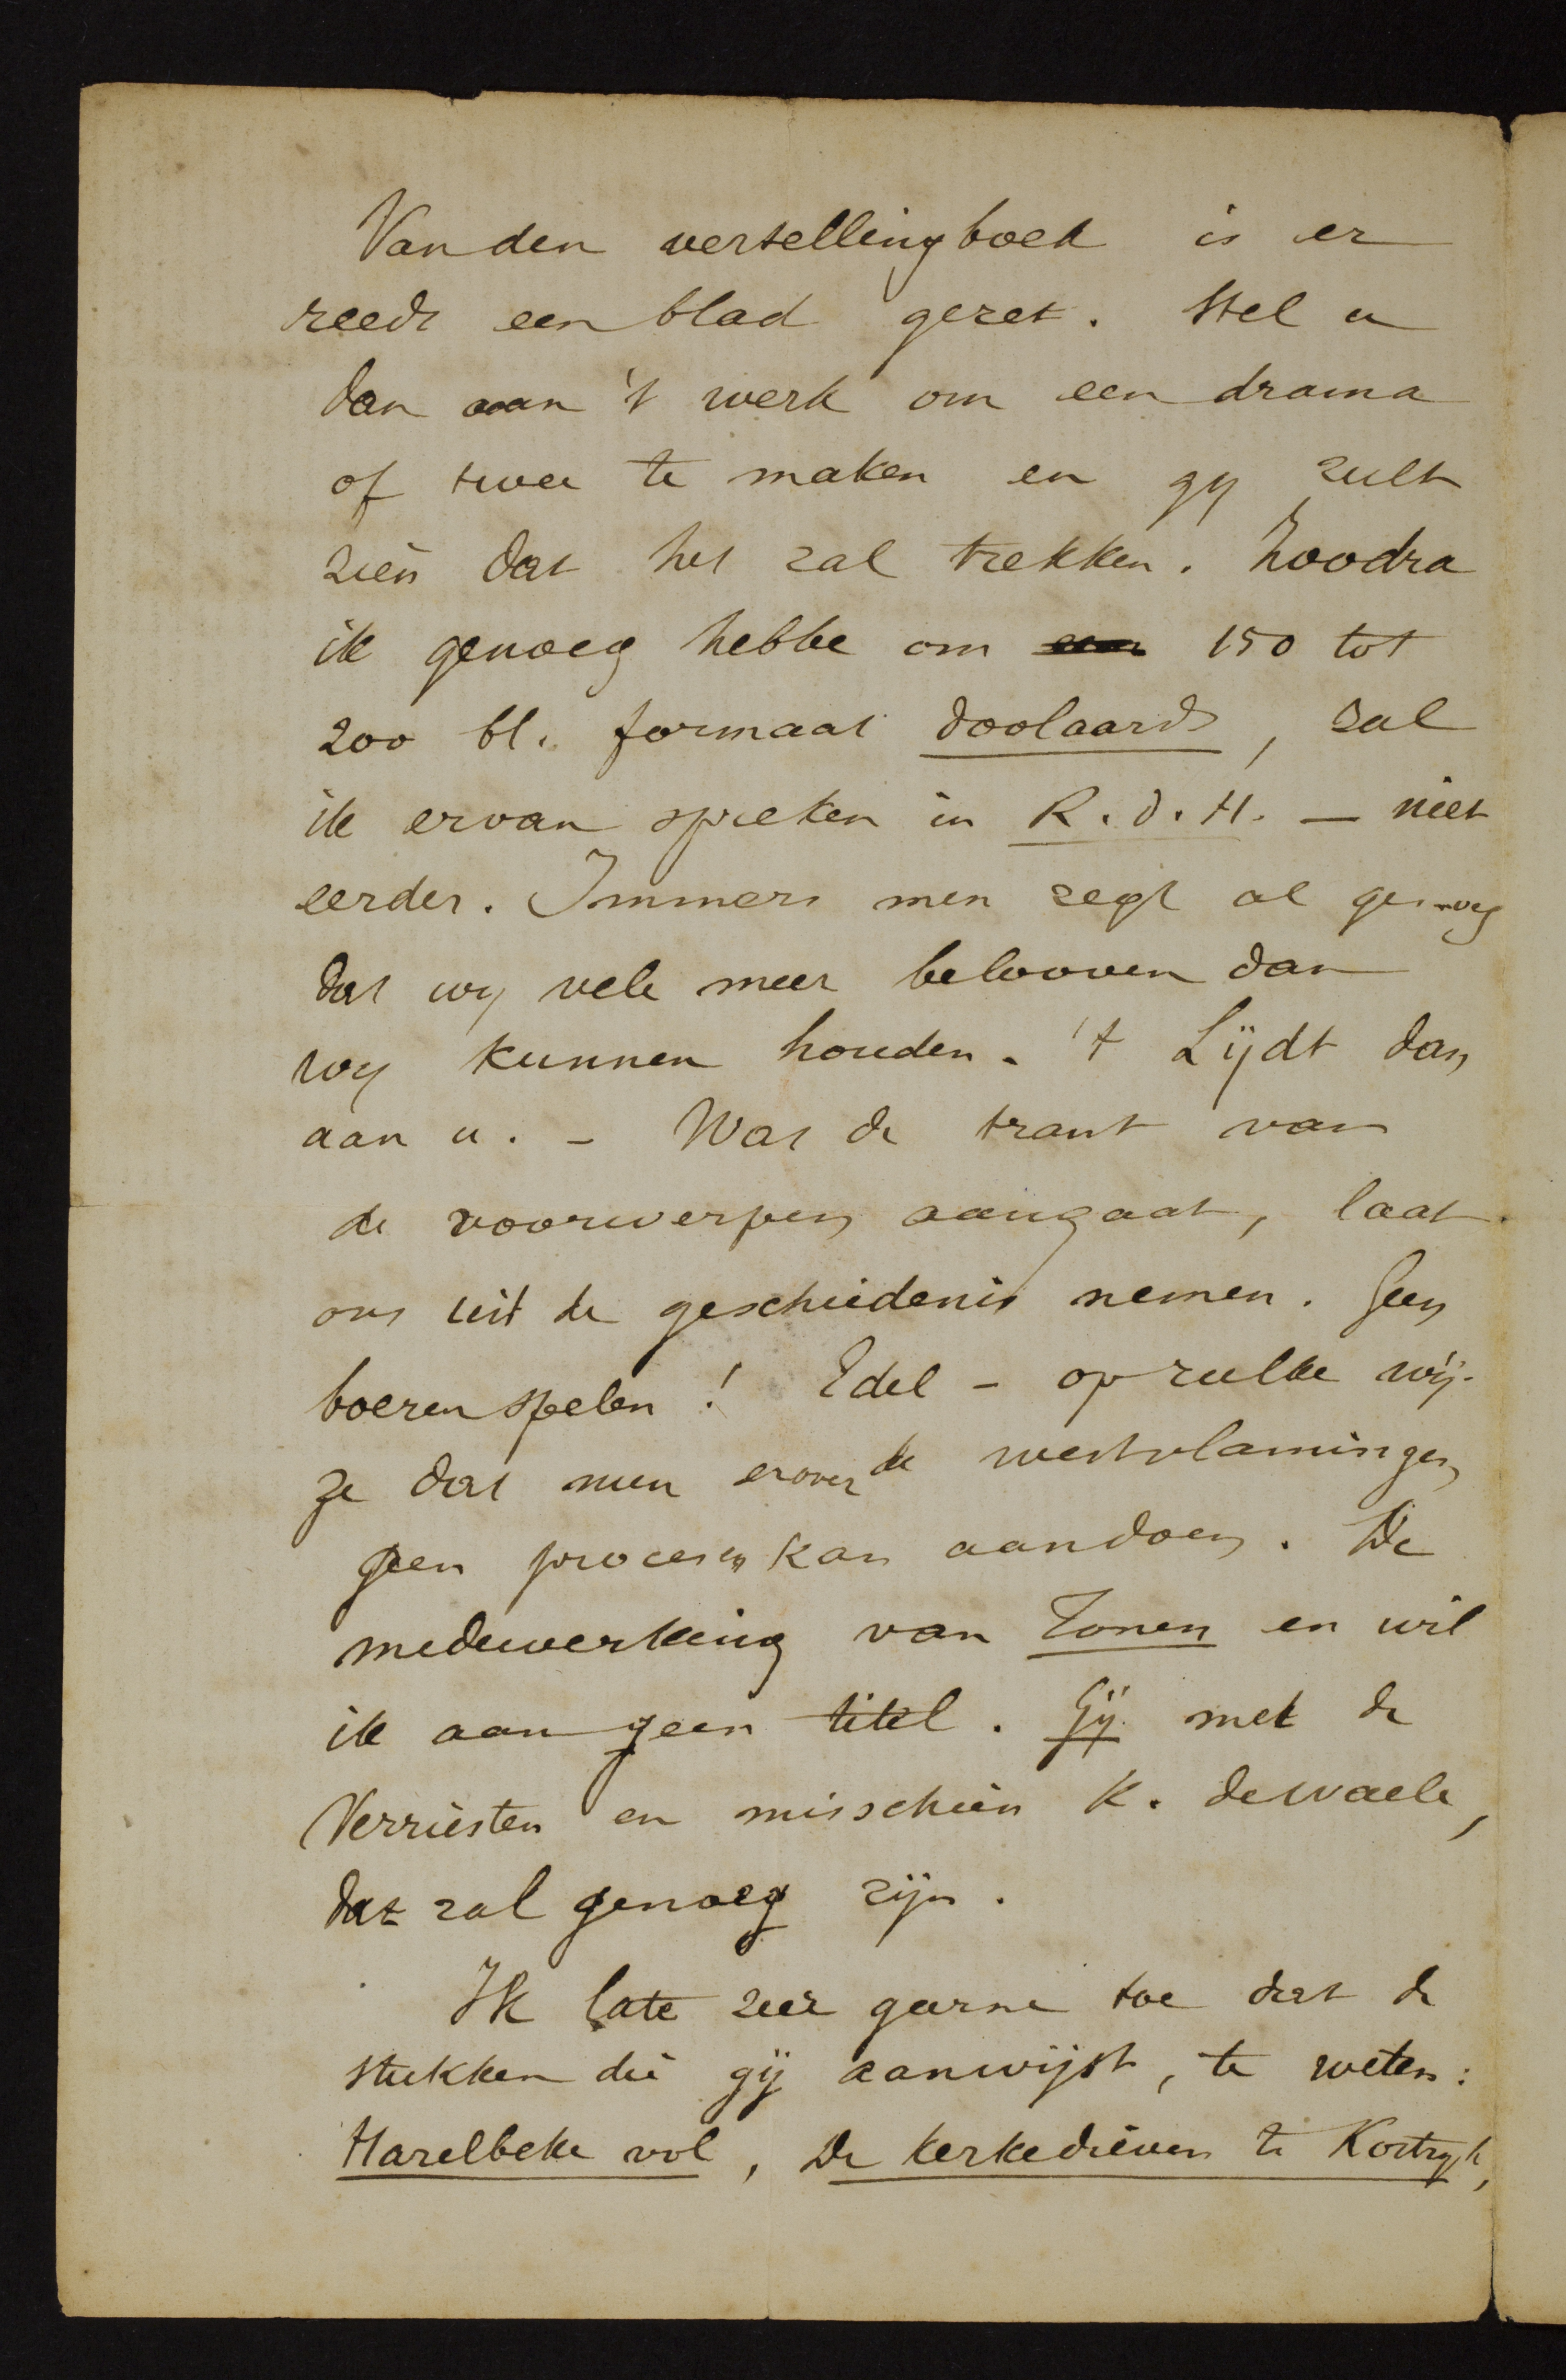 Van den vertellingboek is er
reeds een blad gezet. Stel u
dan aan 't werk om een drama
of twee te maken en gy zult
zien dat het zal trekken. Zoodra
ik genoeg hebbe om een 150 tot
200 bl. formaat doolaards, zal
ik ervan spreken in R. d. H. — niet
eerder. Immers men zegt al genoeg
dat wy vele meer belooven dan
wy kunnen houden. 't Lijdt dan
aan u. – Wat de trant van
de voorwerpen aangaat, laat
ons uit de geschiedenis nemen. Geen
boerenspelen! Edel – op zulke wij-
ze dat men erover de westvlamingen
geen processen kan aandoen. De
medewerking van Zonen en wil
ik aan geen titel. Gij met de
Verriesten en misschien K. deWaele,
dat zal genoeg zijn.
Ik late zeer geerne toe dat de
stukken die gij aanwijst, te weten:
Harelbeke vol, De kerkedieven te Kortryk,